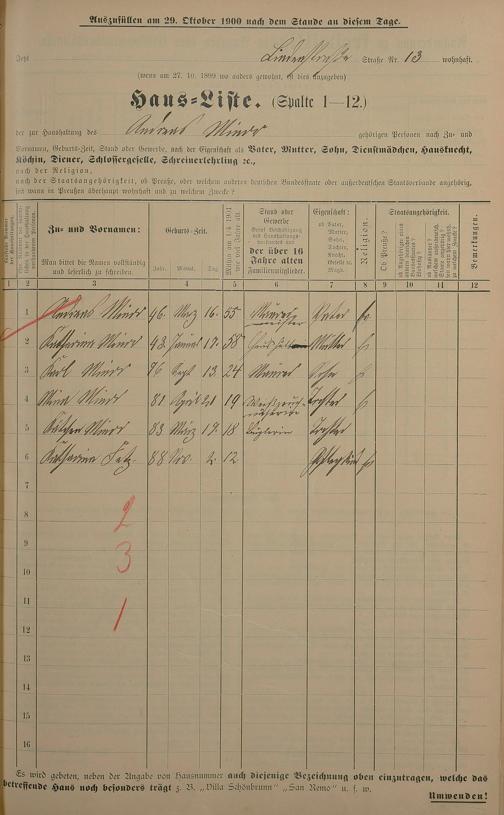 Auszufüllen am 29. Oktober 1900 nach dem Stande an diesem Tage.
Jetzt Lindenstraße Straße Nr. 13 wohnhaft.
(wenn am 27. 10. 1899 wo anders gewohnt, ist dies anzugeben)
Haus-Liste. (Spalte 1—12.)
der zur Haushaltung des Andreas Minor gehörigen Personen nach Zu- und
Vornamen, Geburts-Zeit, Stand oder Gewerbe, nach der Eigenschaft als Vater, Mutter, Sohn, Dienstmädchen, Hausknecht,
Köchin, Diener, Schlossergeselle, Schreinerlehrling ꝛc.,
nach der Religion,
nach der Staatsangehörigkeit, ob Preuße, oder welchem anderen deutschen Bundesstaate oder außerdeutschen Staatsverbande angehörig,
seit wann in Preußen überhaupt wohnhaft und zu welchem Zwecke?
Zu- und Vornamen:
Man bittet die Namen vollständig und leserlich zu schreiben.
Geburts-Zeit.
Jahr. Monat. Tag.
Mithin am 1/4 1901 wie viel Jahre alt.
Stand oder Gewerbe
der über 16 Jahre alten Familienmitglieder.
Eigenschaft:
ob Vater, Mutter, Sohn, Tochter, Knecht, Geselle u. Magd.
Religion.
Staatsangehörigkeit.
Ob Preuße?
Bemerkungen.
1 2 3 4 5 6 7 8 9 10 11 12
1 Andreas Minor 46 März 16. 55 Vater
2 Katharina Minor 43 Januar 17. 58 Mutter
3 Karl Minor 76 Sept 13. 24 Maurer Sohn
4 Mina Minor 81 April 21 19 Tochter
5 Minor 83 März 17. 18 Büglerin Tochter
6 Katharina 88 Nov. 2. 12
7
8 2
9 3
10
11 1
12
13
14
15
16
Es wird gebeten, neben der Angabe von Hausnummer auch diejenige Bezeichnung oben einzutragen, welche das
betreffende Haus noch besonders trägt z. B. „Villa Schönbrunn" „San Remo" u. s. w.
Umwenden!